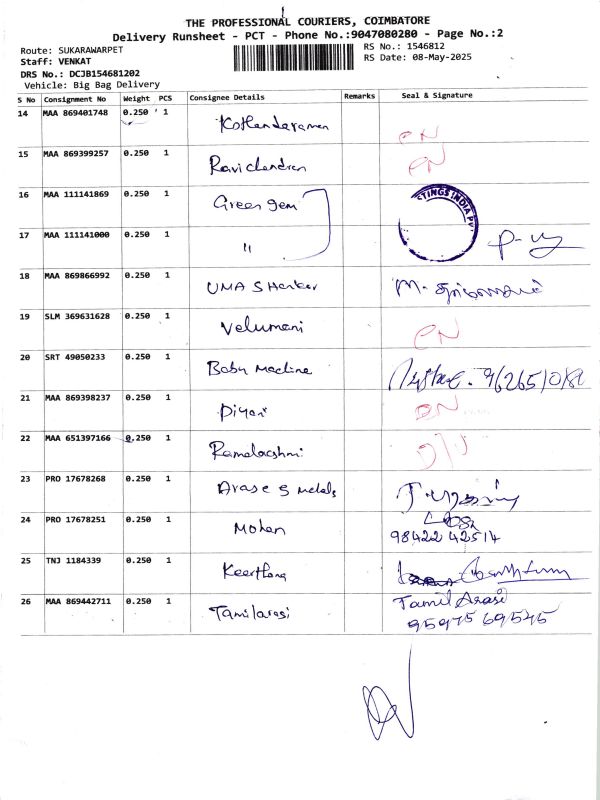 THE PROFESSIONAL COURIERS, COIMBATORE
Delivery Runsheet - PCT - Phone No.:9047080280 - Page No.:2
Route: SUKARAWARPET
RS No.: 1546812
Staff: VENKAT
RS Date: 08-May-2025
DRS No.: DCJB154681202
Vehicle: Big Bag Delivery
S No Consignment No Weight PCS Consignee Details Remarks Seal & Signature
14 MAA 869401748 0.250 1 Kothandaraman
15 MAA 869399257 0.250 1 Ravichandran
16 MAA 111141869 0.250 1 Green gem
TINGS INDIA PVT
17 MAA 111141000 0.250 1 "
18 MAA 869866992 0.250 1 UMA Shanker
19 SLM 369631628 0.250 1 Velumani
20 SRT 49050233 0.250 1 Babu Machine
21 MAA 869398237 0.250 1
22 MAA 651397166 0.250 1 Ramalacshmi
23 PRO 17678268 0.250 1 Arase s metals
24 PRO 17678251 0.250 1 Mohan
98422 42514
25 TNJ 1184339 0.250 1 Keerthana
26 MAA 869442711 0.250 1 Tamilarasi Tamil Arasi
95975 69545